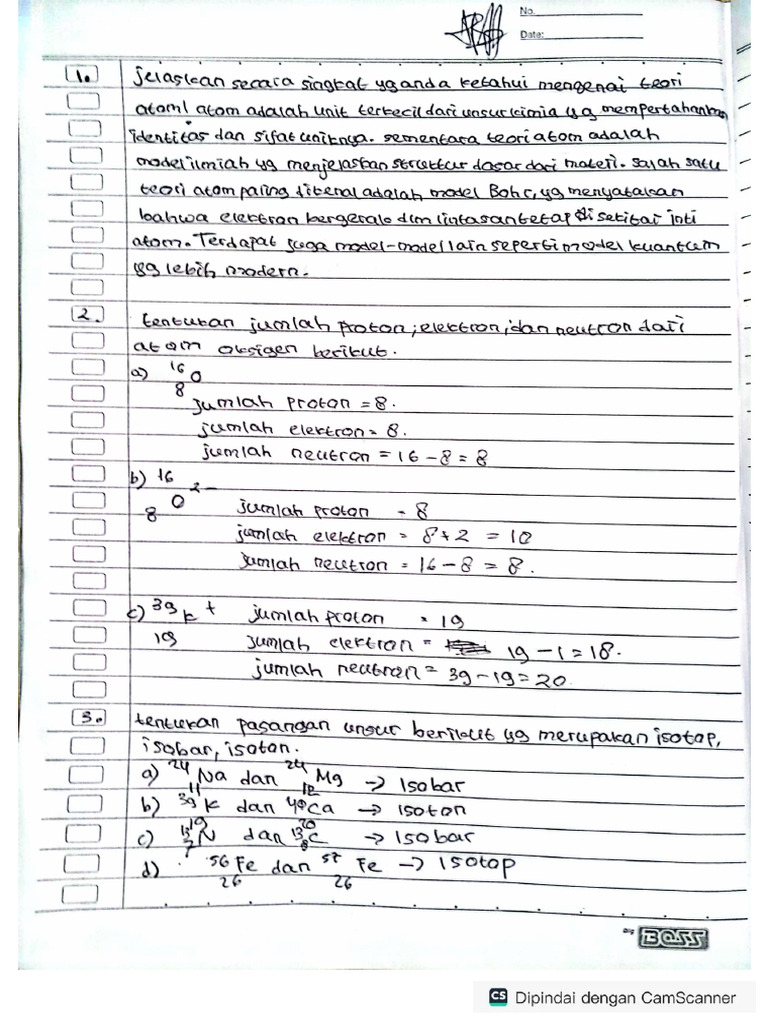 No.
Date:
1. jelaskan secara singkat yg anda ketahui mengenai teori
atom! atom adalah unit terkecil dari unsur kimia yg mempertahankan
identitas dan sifat uniknya. sementara teori atom adalah
model ilmiah yg menjelaskan struktur dasar dari materi. salah satu
teori atom paling dikenal adalah model Bohr, yg menyatakan
bahwa elektron bergerak dlm lintasan tetap di sekitar inti
atom. Terdapat juga model-model lain seperti model kuantum
yg lebih modern.
2. tentukan jumlah proton, elektron, dan neutron dari
atom oksigen berikut.
a) 16 O
8
jumlah proton = 8.
jumlah elektron = 8.
jumlah neutron = 16 - 8 = 8
b) 16 O 2-
8 jumlah proton = 8
jumlah elektron = 8 + 2 = 10
jumlah neutron = 16 - 8 = 8.
c) 39 K + jumlah proton = 19
19 jumlah elektron = 19 - 1 = 18.
jumlah neutron = 39 - 19 = 20.
3. tentukan pasangan unsur berikut yg merupakan isotop,
isobar, isoton.
a) 24 Na dan 24 Mg -> Isobar
11 12
b) 39 K dan 40 Ca -> isoton
19 20
c) 13 N dan 13 C -> Isobar
7
d) 56 Fe dan 57 Fe -> Isotop
26 26
BOSS
CS Dipindai dengan CamScanner